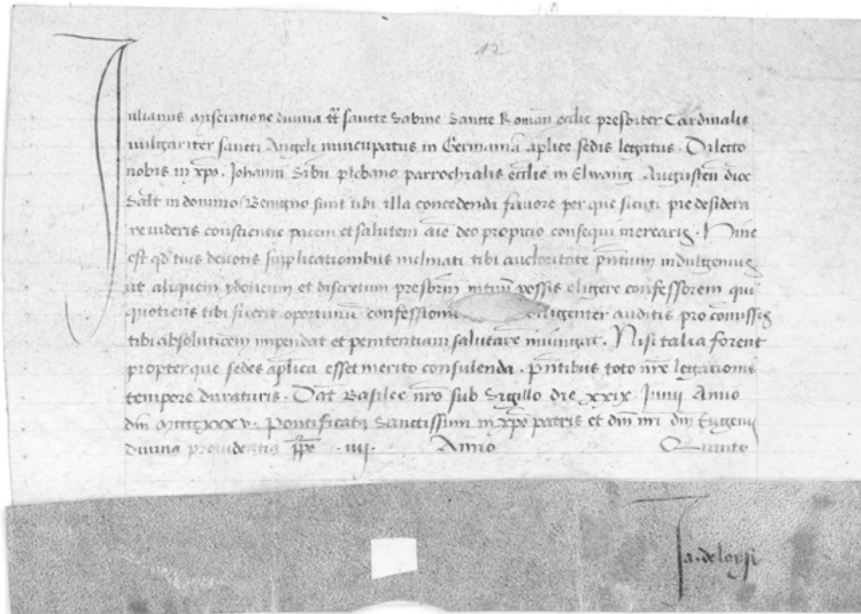 12
Julianus miseratione divina tt sancte Sabine Sancte Roman ecclie presbiter Cardinalis
vulgariter sancti Angeli nuncupatus in Germania aplice sedis legatus. Dilecto
nobis in xpo. Johanni Sibn plebano parrochialis ecclie in Elwang Augusten dioc
Salt in domino. Benigno sunt tibi illa concedenda favore per que sicuti pie desidera
re videris consciencie pacem et salutem aie deo propicio consequi merearis. Hinc
est qd tuis devotis supplicationibus inclinati tibi auctoritate pntium indulgemus
ut aliquem ydoneum et discretum presbrm in tuu possis eligere confessorem qui
quotiens tibi fuerit oportunu confessione diligenter auditis pro comissis
tibi absolucionem impendat et penitentiam salutare iniungat. Nisi talia forent
propter que sedes aplica esset merito consulenda. pntibus toto nre legationis
tempore duraturis. Dat Basilee nro sub Sigillo die xxix. Junij Anno
dni Mccccxxxv. pontificatus Sanctissimi in xpo patris et dni nri dni Eugenij
divina providentia ppe .iiij. Anno Quinto
Ja. de